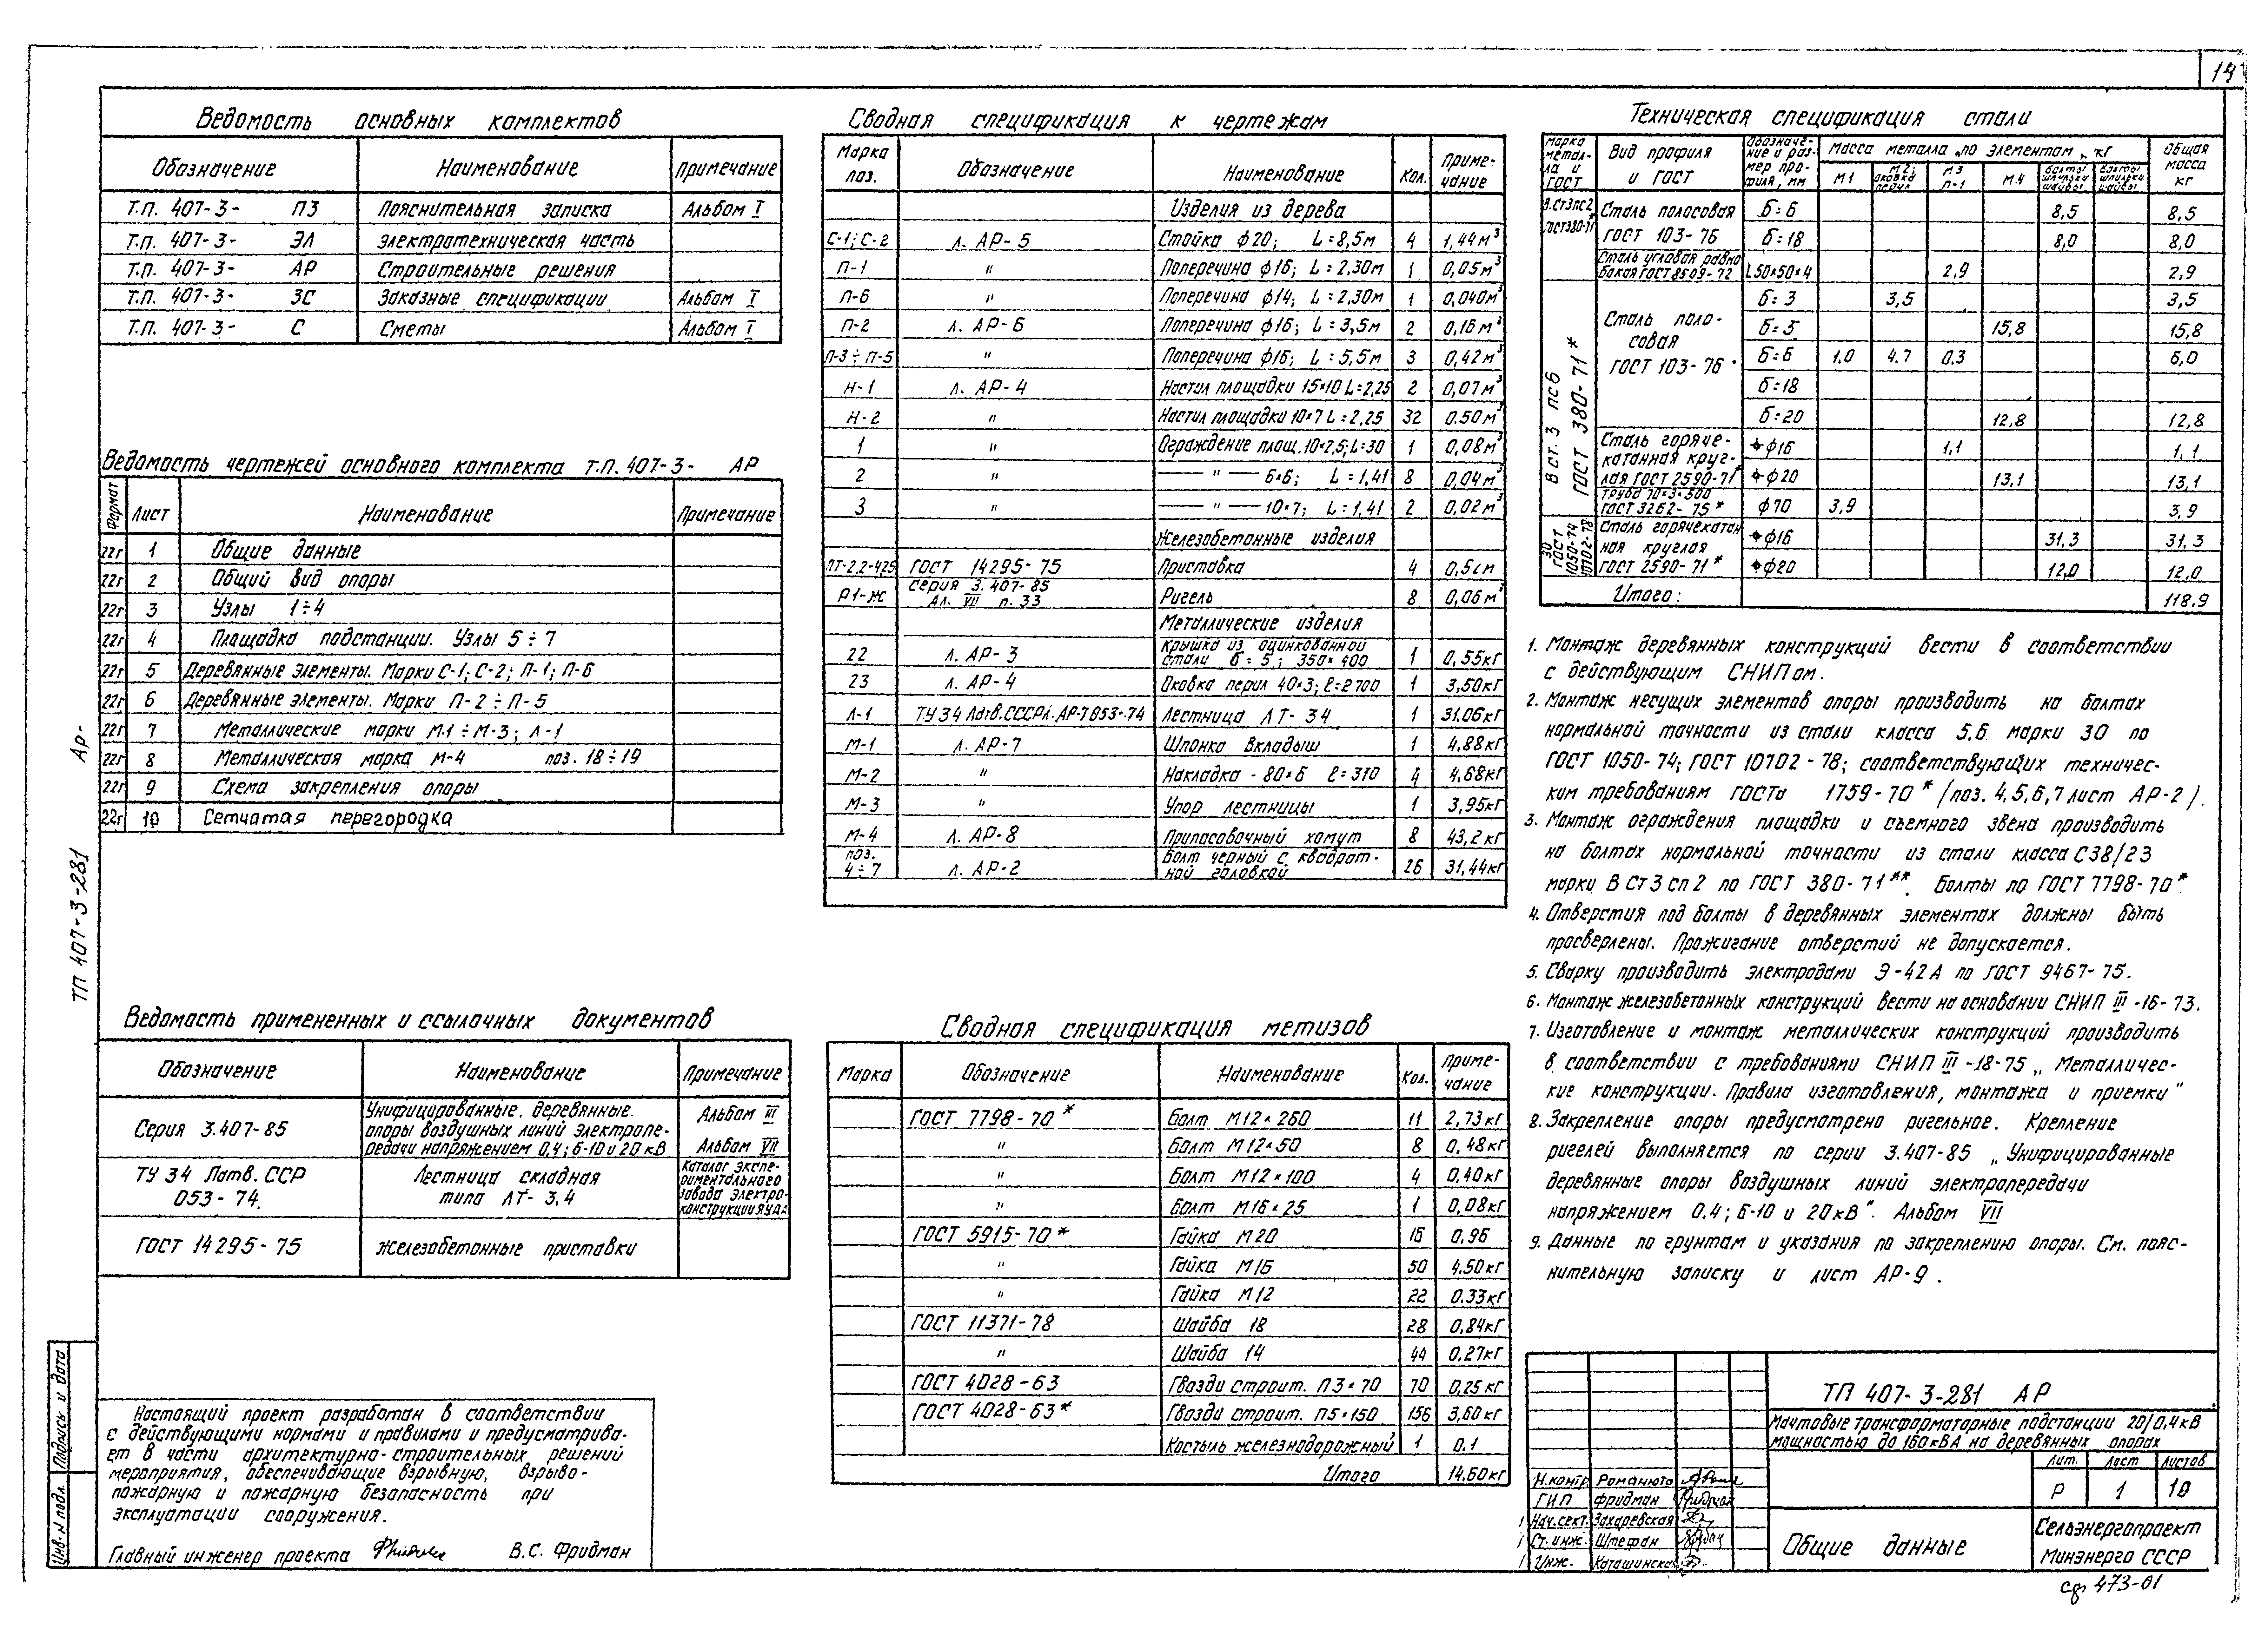 14
Ведомость основных комплектов
Обозначение Наименование Примечание
Т.П. 407-3- ПЗ Пояснительная записка Альбом I
Т.П. 407-3- ЭЛ Электротехническая часть
Т.П. 407-3- АР Строительные решения
Т.П. 407-3- ЗС Заказные спецификации Альбом I
Т.П. 407-3- С Сметы Альбом I
Ведомость чертежей основного комплекта Т.П. 407-3- АР
Формат Лист Наименование Примечание
22г 1 Общие данные
22г 2 Общий вид опоры
22г 3 Узлы 1÷4
22г 4 Площадка подстанции. Узлы 5÷7
22г 5 Деревянные элементы. Марки С-1; С-2; П-1; П-6
22г 6 Деревянные элементы. Марки П-2÷П-5
22г 7 Металлические марки М-1÷М-3; Л-1
22г 8 Металлическая марка М-4 поз. 18÷19
22г 9 Схема закрепления опоры
22г 10 Сетчатая перегородка
Ведомость примененных и ссылочных документов
Обозначение Наименование Примечание
Серия 3.407-85 Унифицированные деревянные опоры воздушных линий электропередачи напряжением 0,4; 6-10 и 20 кВ Альбом III Альбом VII
ТУ 34 Латв. ССР 053-74. Лестница складная типа ЛТ-3,4 Каталог экспериментального завода электроконструкции
ГОСТ 14295-75 Железобетонные приставки
Настоящий проект разработан в соответствии
с действующими нормами и правилами и предусматрива-
ет в части архитектурно-строительных решений
мероприятия, обеспечивающие взрывную, взрыво-
пожарную и пожарную безопасность при
эксплуатации сооружения.
Главный инженер проекта В.С. Фридман
ТП 407-3-281 Ар-
Подпись и дата
Инв. N подл.
Сводная спецификация к чертежам
Марка поз. Обозначение Наименование Кол. Примечание
Изделия из дерева
С-1; С-2 л. АР-5 Стойка ф20; L=8,5м 4 1,44м³
П-1 " Поперечина ф16; L=2,30м 1 0,05м³
П-6 " Поперечина ф14; L=2,30м 1 0,040м³
П-2 л. АР-6 Поперечина ф16; L=3,5м 2 0,16м³
П-3÷П-5 " Поперечина ф16; L=5,5м 3 0,42м³
Н-1 л. АР-4 Настил площадки 15×10 L=2,25 2 0,07м³
Н-2 " Настил площадки 10×7 L=2,25 32 0.50м³
1 " Ограждение площ. 10×2,5; L=30 1 0,08м³
2 " — " — 6×6; L=1,41 8 0,04м³
3 " — " — 10×7; L=1,41 2 0,02м³
Железобетонные изделия
ПТ-2,2-4,25 ГОСТ 14295-75 Приставка 4
Р1-Ж Серия 3.407-85 Ал. VII п. 33 Ригель 8 0,06м³
Металлические изделия
22 л. АР-3 Крышка из оцинкованной стали б=5; 350×400 1 0,55кг
23 л. АР-4 Оковка перил 40×3; ℓ=2700 1 3,50кг
Л-1 ТУ 34 Латв.СССР л.АР-7 853-74 Лестница ЛТ-34 1 31.06кг
М-1 л. АР-7 Шпонка вкладыш 1 4,88кг
М-2 " Накладка -80×6 ℓ=310 4 4,68кг
М-3 " Упор лестницы 1 3,95кг
М-4 л. АР-8 Припасовочный хомут 8 43,2кг
поз. 4÷7 л. АР-2 Болт черный с квадратной головкой 26 31,44кг
Сводная спецификация метизов
Марка Обозначение Наименование Кол. Примечание
ГОСТ 7798-70* Болт М12×260 11 2,73кг
" Болт М12×50 8 0,48кг
" Болт М12×100 4 0,40кг
" Болт М16×25 1 0,08кг
ГОСТ 5915-70* Гайка М20 16 0,96
" Гайка М16 50 4,50кг
" Гайка М12 22 0.33кг
ГОСТ 11371-78 Шайба 18 28 0,84кг
" Шайба 14 44 0,27кг
ГОСТ 4028-63 Гвозди строит. П3×70 70 0,25кг
ГОСТ 4028-63* Гвозди строит. П5×150 156 3,60кг
Костыль железнодорожный 1 0.1
Итого 14,60кг
Техническая спецификация стали
Марка металла и ГОСТ Вид профиля и ГОСТ Обозначение и размер профиля, мм Масса металла по элементам, кг Общая масса кг
М1 М2; оковка перил М3 П-1 М4 болты шпильки шайбы болты шпильки шайбы
В.Ст3пс2 ГОСТ380-71* Сталь полосовая ГОСТ 103-76 б=6 8,5 8,5
б=18 8,0 8,0
Сталь угловая равнобокая ГОСТ 8509-72 L50×50×4 2,9 2,9
В ст. 3 пс6 ГОСТ 380-71* Сталь полосовая ГОСТ 103-76 б=3 3,5 3,5
б=5 15,8 15,8
б=6 1,0 4,7 0,3 6,0
б=18
б=20 12,8 12,8
Сталь горячекатанная круглая ГОСТ 2590-71* ф16 1,1 1,1
ф20 13,1 13,1
Труба 70×3×500 ГОСТ 3262-75* ф70 3,9 3,9
30 ГОСТ 1050-74 10702-78 Сталь горячекатанная круглая ГОСТ 2590-71* ф16 31,3 31,3
ф20 12,0 12,0
Итого: 118.9
1. Монтаж деревянных конструкций вести в соответствии
с действующим СНИПом.
2. Монтаж несущих элементов опоры производить на болтах
нормальной точности из стали класса 5,6 марки 30 по
ГОСТ 1050-74; ГОСТ 10702-78; соответствующих техничес-
ким требованиям ГОСТа 1759-70* /поз. 4,5,6,7 лист АР-2/.
3. Монтаж ограждения площадки и съемного звена производить
на болтах нормальной точности из стали класса С38/23
марки ВСт3сп2 по ГОСТ 380-71**. Болты по ГОСТ 7798-70*.
4. Отверстия под болты в деревянных элементах должны быть
просверлены. Прожигание отверстий не допускается.
5. Сварку производить электродами Э-42А по ГОСТ 9467-75.
6. Монтаж железобетонных конструкций вести на основании СНИП III-16-73.
7. Изготовление и монтаж металлических конструкций производить
в соответствии с требованиями СНИП III-18-75 „Металличес-
кие конструкции. Правила изготовления, монтажа и приемки"
8. Закрепление опоры предусмотрено ригельное. Крепление
ригелей выполняется по серии 3.407-85 „Унифицированные
деревянные опоры воздушных линий электропередачи
напряжением 0.4; 6-10 и 20кВ". Альбом VII
9. Данные по грунтам и указания по закреплению опоры. См. пояс-
нительную записку и лист АР-9.
ТП 407-3-281 АР
Мачтовые трансформаторные подстанции 20/0,4кВ
мощностью до 160кВА на деревянных опорах
Лит. Лист Листов
Р 1 10
Н.контр. Романюта
ГИП Фридман
Нач.сект. Захаревская
Ст.инж. Штефан
Инж.
Общие данные
Сельэнергопроект
Минэнерго СССР
сф 473-01